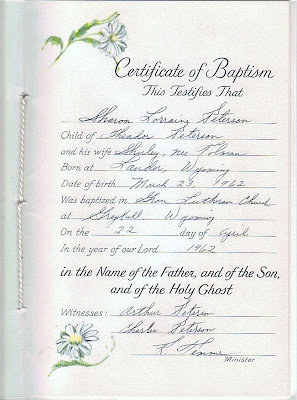 Certificate of Baptism
This Testifies That
Sharon Lorraine Peterson
Child of Theador Peterson
and his wife Shirley, nee
Born at Lander, Wyoming
Date of birth March 23 1962
Was baptized in Lutheran Church
at Greybull Wyoming
On the 22 day of April
In the year of our Lord 1962
in the Name of the Father, and of the Son,
and of the Holy Ghost
Witnesses: Arthur Peterson
Charlie Peterson
Minister